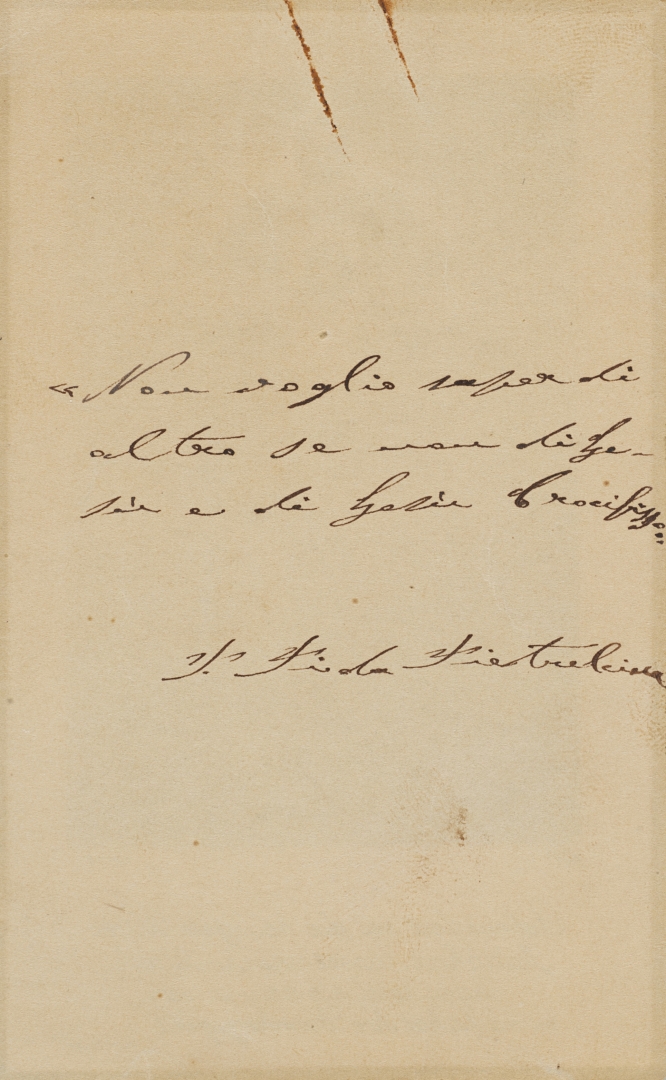 « Non voglio saper di
altro se non di Ge-
sù e di Gesù Crocifisso »
P. Pio da Pietrelcina